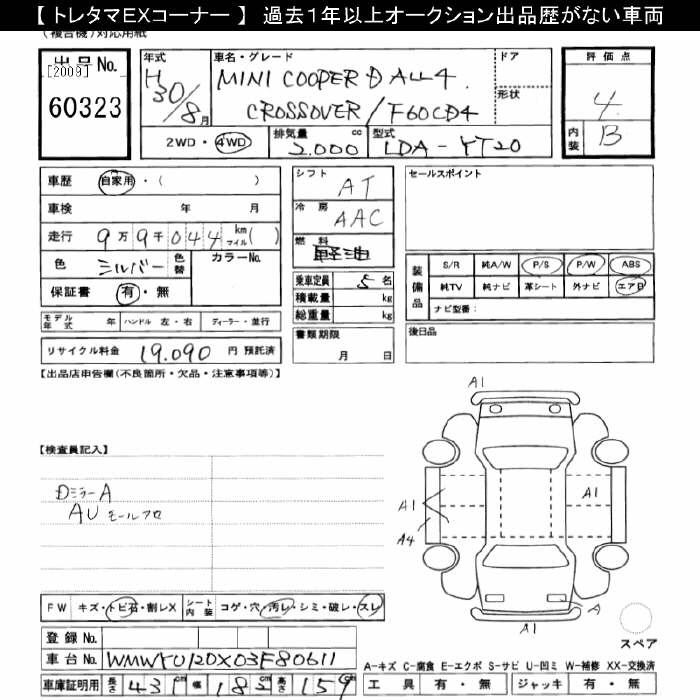 【 トレタマEXコーナー 】 過去1年以上オークション出品歴がない車両
(複合機)対応用紙
出品No.
[2009]
60323
年式 H30/8月
車名・グレード
MINI COOPER D ALL4
CROSSOVER/F60CD4
ドア
形状
評価点
4
内装 B
2WD・4WD
排気量 2.000 cc
型式 LDA-YT20
車歴 自家用・( )
車検 年 月
走行 9万9千044 km マイル( )
色 シルバー 色替 カラーNo.
保証書 有・無
モデル年式 年 ハンドル 左・右 ディーラー・並行
リサイクル料金 19.090 円 預託済
シフト AT
冷房 AAC
燃料 軽油
乗車定員 5 名
積載量 kg
総重量 kg
書類期限
月 日
セールスポイント
装備品
S/R 純A/W P/S P/W ABS
純TV 純ナビ 革シート 外ナビ エアB
ナビ型番:
後日品
【出品店申告欄(不良箇所・欠品・注意事項等)】
【検査員記入】
DミラーA
AU モールフロ
A1
A1
A1
A4
A
A1
スペア
FW キズ・トビ石・割レX シート内装 コゲ・穴・汚レ・シミ・破レ・スレ
登録No.
車台No. WMWYU120X03F80611
車庫証明用 長さ 431 cm 幅 182 cm 高さ 159
A-キズ C-腐食 E-エクボ S-サビ U-凹ミ W-補修 XX-交換済
工具 有・無 ジャッキ 有・無